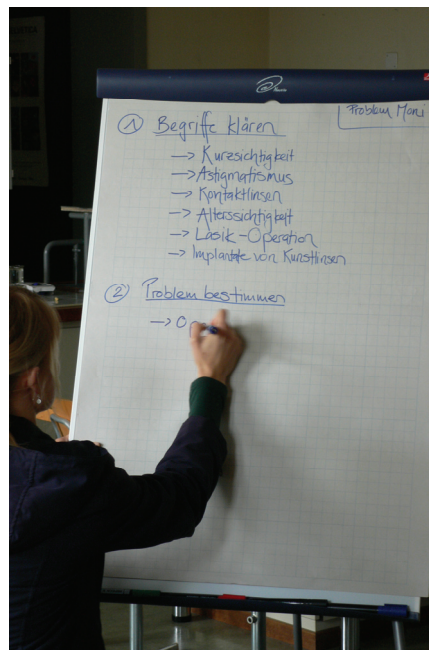 Problem Mani
① Begriffe klären
→ Kurzsichtigkeit
→ Astigmatismus
→ Kontaktlinsen
→ Alterssichtigkeit
→ Lasik-Operation
→ Implantate von Kunstlinsen
② Problem bestimmen
→ O